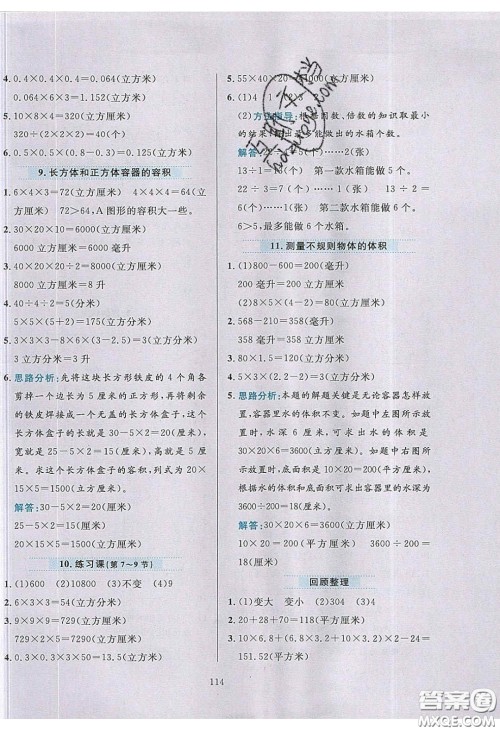 4. 0.4×0.4×0.4=0.064(立方米)
0.064×6×3=1.152(立方米)
5. 10×8×4=320(立方厘米)
320÷(2×2×2)=40(个)
6. 0.5×0.5×(0.8-0.3)=0.125(立方米)
9. 长方体和正方体容器的容积
1. 6×4×3=72(立方厘米) 4×4×4=64(立方厘米)
72>64,A图形的容积大一些。
2. 30×20×10=6000(立方厘米)
6000立方厘米=6000毫升
3. 40×20×(20÷2)=8000(立方厘米)
8000立方厘米=8000毫升
4. (40÷4÷2)=5(分米)
5×5×(5+2)=175(立方分米)
5. (5-2×2)×(5-2×2)×(5-2)=3(立方分米)
3立方分米=3升
6. 思路分析:先将这块长方形铁皮的4个角各
剪掉一个边长为5厘米的正方形,将剩余
的铁皮焊接成一个无盖的长方体盒子。这
个长方体盒子的长就是30-5×2=20(厘米),
宽就是25-5×2=15(厘米),高就是5厘
米。求这个长方体盒子的容积,列式为20×
15×5=1500(立方厘米)。
解答:30-5×2=20(厘米)
25-5×2=15(厘米)
20×15×5=1500(立方厘米)
10. 练习课(第7~9节)
1. (1)600 (2)10800 (3)不变 (4)9
2. 6×3×3=54(立方分米)
3. 9×9×9=729(立方厘米)
729×2=1458(立方厘米)
4. 0.3×0.3×(3×50)=13.5(立方米)
5. 55×40×20
6. (1)4 1 2
最小
的结果
13÷1=13(个) 第一款水箱能做6个。
22÷3=7(个)……1(张) 第二款水箱能做6个。
6>5,最多能做6个水箱。
11. 测量不规则物体的体积
1. (1)800-600=200(毫升)
200毫升=200立方厘米
(2)8×5×(4-2)=80(立方厘米)
2. 568-210=358(毫升)
358毫升=358立方厘米
3. 80×1.5=120(立方厘米)
4. 5×2×(9-8)=10(立方分米)
5. 思路分析:本题的解题关键是无论容器怎样
放置,容器里水的体积不变。如题中左图所
示放置,水深6厘米,可求出水的体积是
30×20×6=3600(立方厘米)。如题中右图
所示放置,根据水的体积可求出容器里的水深为
3600÷(20×10)=18(厘米)。
解答:30×20×6=3600(立方厘米)
10×20=200(平方厘米) 3600÷200=18(厘米)
回顾整理
1. (1)变大 变小 (2)304 (3)150
2. 20+28+70=118(平方厘米)
3. 10×6.8+(10×3.2+6.8×3.2-6)×2-4.2×3=
151.52(平方米)
114
答案圈
MXQE.COM